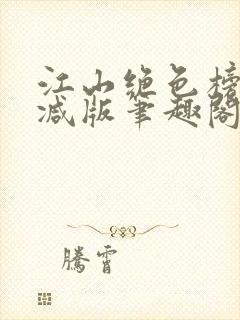 江山绝色榜
减版笔趣阁
騰霄